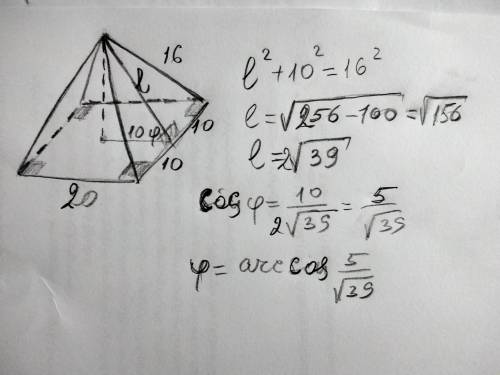 16
l
10 φ
10
10
20
l² + 10² = 16²
l = √256 - 100 = √156
l = 2√39
cos φ = 10/2√39 = 5/√39
φ = arccos 5/√39